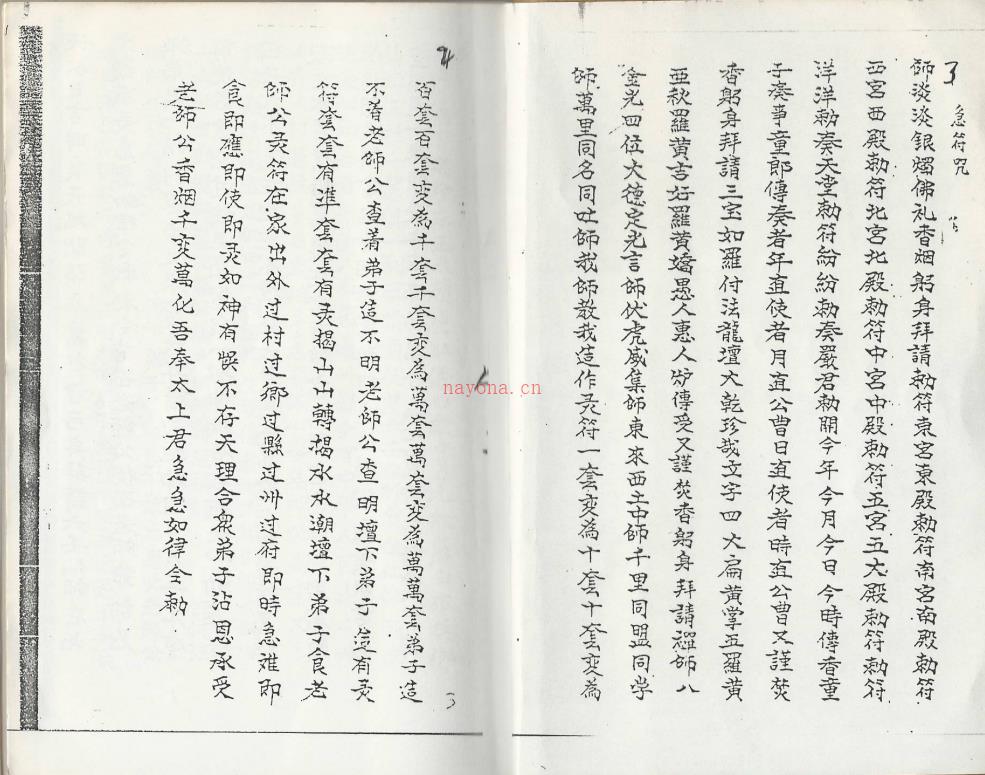 3
急符咒
师淡淡銀燭佛礼香烟躬身拜請勅符东宮東殿勅符南宮南殿勅符
西宮西殿勅符北宮北殿勅符中宮中殿勅符五宮五大殿勅符勅符
洋洋勅奏天堂勅符紛紛勅奏嚴君勅開今年今月今日今時傳香童
子奏事童郎傳奏者年直使者月直公曹日直使者時直公曹又謹焚
香躬身拜請三宝如羅付法龍壇大乾珍哉文字四大扁黄掌五羅黄
亜秋羅黄吉好羅黄嬌愚人惠人妙傳受又謹焚香躬身拜請禪师八
金光四位大德定光言师伏虎威集师東來西土中师千里同盟同学
师萬里同名同吐师我师教我造作灵符一套変為十套十套変為
百套百套変為千套千套変為萬套萬套変為萬萬套弟子造
不着老师公查着弟子造不明老师公查明壇下弟子造有灵
符套套有準套套有灵揭山山轉揭水水潮壇下弟子食老
师公灵符在家出外过村过鄉过縣过州过府即時急难即
食即應即使即灵如神有悞不存天理合眾弟子沾恩承受
老师公香烟千変萬化吾奉太上君急急如律令勅
nayona.cn